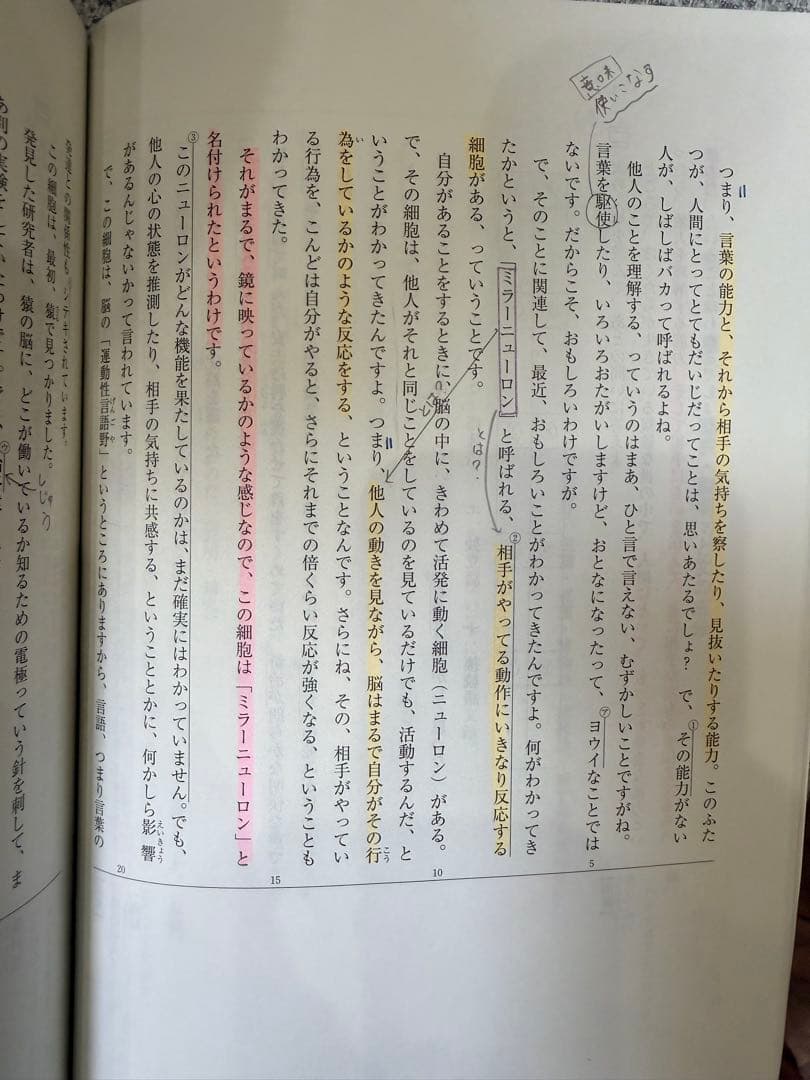 意味
使いこなす
つまり、言葉の能力と、それから相手の気持ちを察したり、見抜いたりする能力。このふた
つが、人間にとってとてもだいじだってことは、思いあたるでしょ？ で、①その能力がない
人が、しばしばバカって呼ばれるよね。
他人のことを理解する、っていうのはまあ、ひと言で言えない、むずかしいことですがね。
言葉を駆使したり、いろいろおたがいしますけど、おとなになったって、㋐ヨウイなことでは
ないです。だからこそ、おもしろいわけですが。
5
で、そのことに関連して、最近、おもしろいことがわかってきたんですよ。何がわかってき
たかというと、『ミラーニューロン』と呼ばれる、②相手がやってる動作にいきなり反応する
とは？
細胞がある、っていうことです。
自分があることをするときに、脳の中に、きわめて活発に動く細胞（ニューロン）がある。
10
で、その細胞は、他人がそれと同じことをしているのを見ているだけでも、活動するんだ、と
いうことがわかってきたんですよ。つまり、他人の動きを見ながら、脳はまるで自分がその行
こう
為をしているかのような反応をする、ということなんです。さらにね、その、相手がやってい
い
る行為を、こんどは自分がやると、さらにそれまでの倍くらい反応が強くなる、ということも
わかってきた。
15
それがまるで、鏡に映っているかのような感じなので、この細胞は「ミラーニューロン」と
名付けられたというわけです。
③このニューロンがどんな機能を果たしているのかは、まだ確実にはわかっていません。でも、
他人の心の状態を推測したり、相手の気持ちに共感する、ということとかに、何かしら影響
えいきょう
があるんじゃないかって言われています。
20
で、この細胞は、脳の「運動性言語野」というところにありますから、言語、つまり言葉の
げんごや
発達との関係性も、シテキされています。
この細胞は、最初、猿で見つかりました。
発見した研究者は、猿の脳に、どこが働いているか知るための電極っていう針を刺して、ま